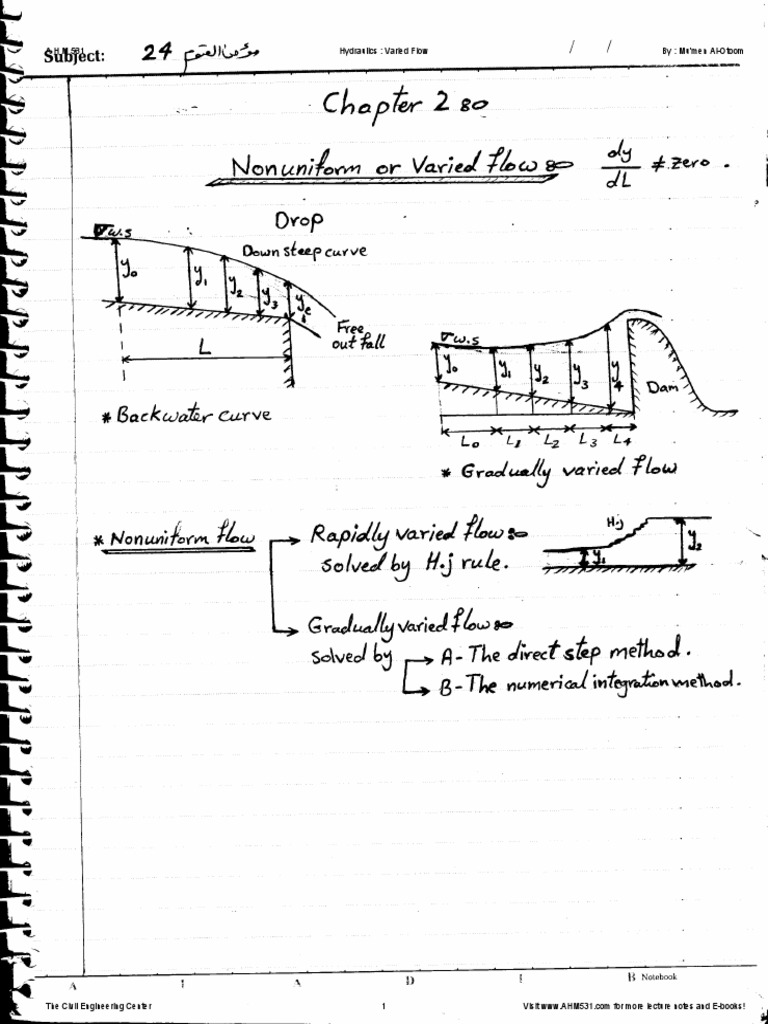 AHM531
Subject: 24 مؤمن العتوم Hydraulics : Varied Flow / / By : Mu'men Al-Otoom
Chapter 2 :-
Nonuniform or Varied flow :- dy/dL ≠ zero .
Drop
w.s
Down steep curve
y₀ y₁ y₂ y₃ yc
Free
out fall
L
w.s
y₀ y₁ y₂ y₃ y₄
Dam
* Backwater curve
L₀ L₁ L₂ L₃ L₄
* Gradually varied flow
* Nonuniform flow
Rapidly varied flow :-
solved by H.j rule.
H.j
y₁ y₂
Gradually varied flow :-
solved by
A- The direct step method.
B- The numerical integration method.
A I A D I B Notebook
The Civil Engineering Center 1 Visit www.AHM531.com for more lecture notes and E-books!